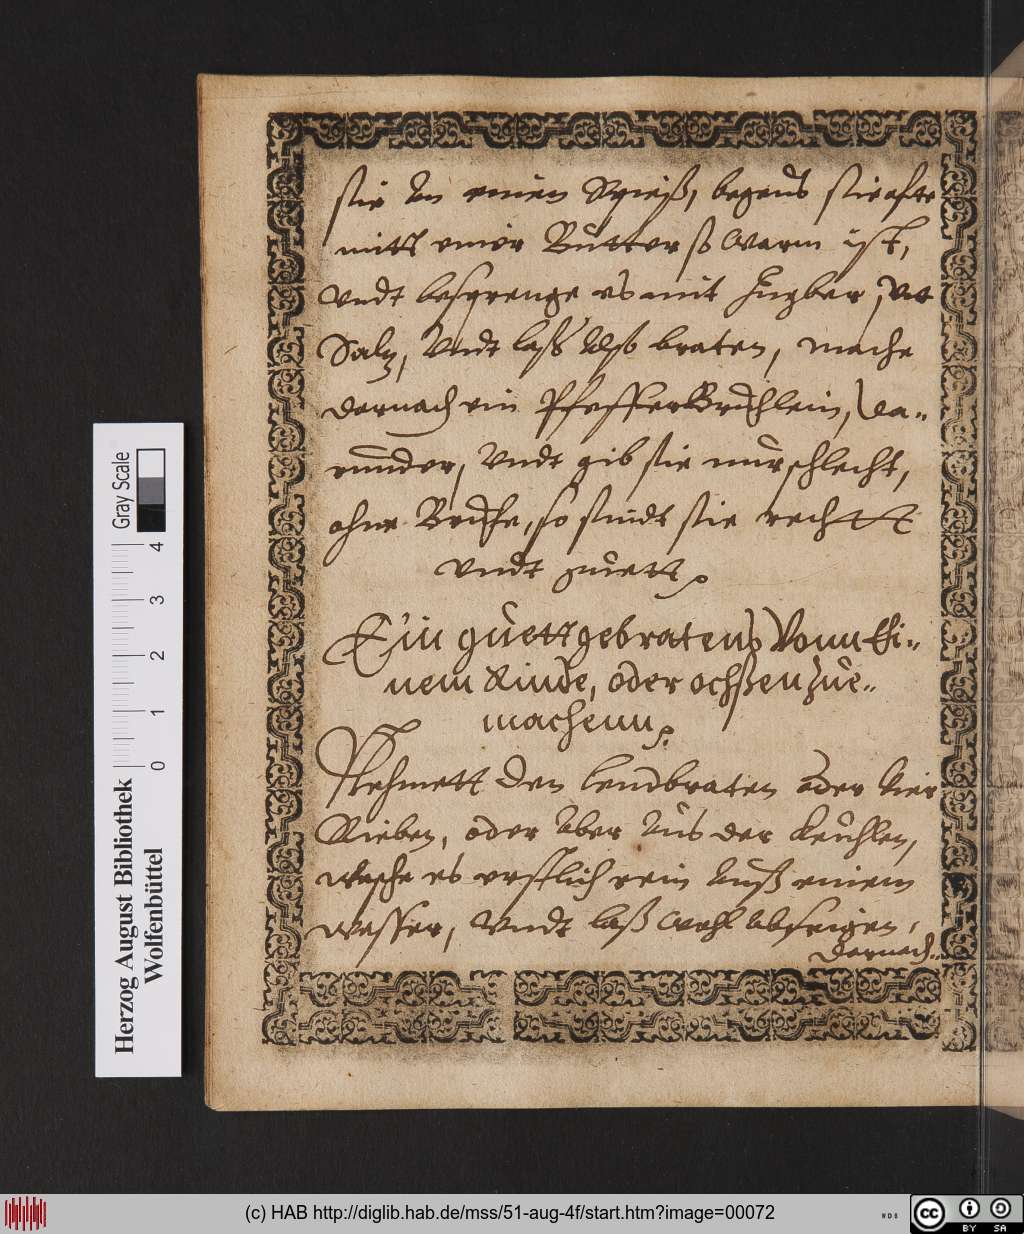 stie An einen Spieß, begeus stie offte
mitt einer Butter so warm ist,
vndt besprenge es mit Jngber, vnt
Saltz, Vndt laß Also braten, mache
darnach ein PfefferBruhlein, Da-
runder, Vndt gib stie nur schlecht,
ohne Bruhe, so sindt stie rechtt
vndt guett.
Ein guett gebratens Vonn Ei-
nem Rinde, oder ochßen zue-
machenn.
Nehmett den lendbraten oder vier
Rieben, oder Aber Aus der Keuhlen,
Wasche es erstlich rein Auß einem
Wasser, Vndt laß wohl Abseigen,
Darnach
Gray Scale
0 1 2 3 4
Herzog August Bibliothek
Wolfenbüttel
(c) HAB http://diglib.hab.de/mss/51-aug-4f/start.htm?image=00072
WDB
cc BY SA